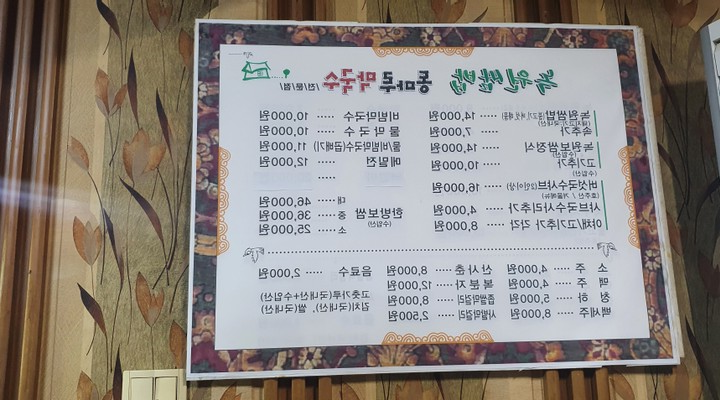 녹원쌈밥 동마루 막국수 /전/문/점/
녹원쌈밥 ..... 14,000원
속추가 ..... 7,000원
녹원보쌈정식 ..... 14,000원
(수입산)
고기추가 ..... 10,000원
(수입산)
버섯국수샤브(2인이상) ..... 16,000원
(호주산 / 겨울메뉴)
샤브국수사리추가 ..... 4,000원
야채/고기추가 각각 ..... 8,000원
비빔막국수 ..... 10,000원
물 막 국 수 ..... 10,000원
물/비빔막국수(곱빼기) 11,000원
메밀전 ..... 12,000원
.....
한방보쌈 대 ..... 46,000원
(수입산) 중 ..... 36,000원
소 ..... 25,000원
소 주 ..... 4,000원
맥 주 ..... 4,000원
청 하 ..... 5,000원
백세주 ..... 8,000원
산 사 춘 ..... 8,000원
복 분 자 ..... 12,000원
좁쌀막걸리 ..... 8,000원
생막걸리 ..... 2,500원
음료수 ..... 2,000원
고춧가루(국내산+수입산)
김치(국내산), 쌀(국내산)